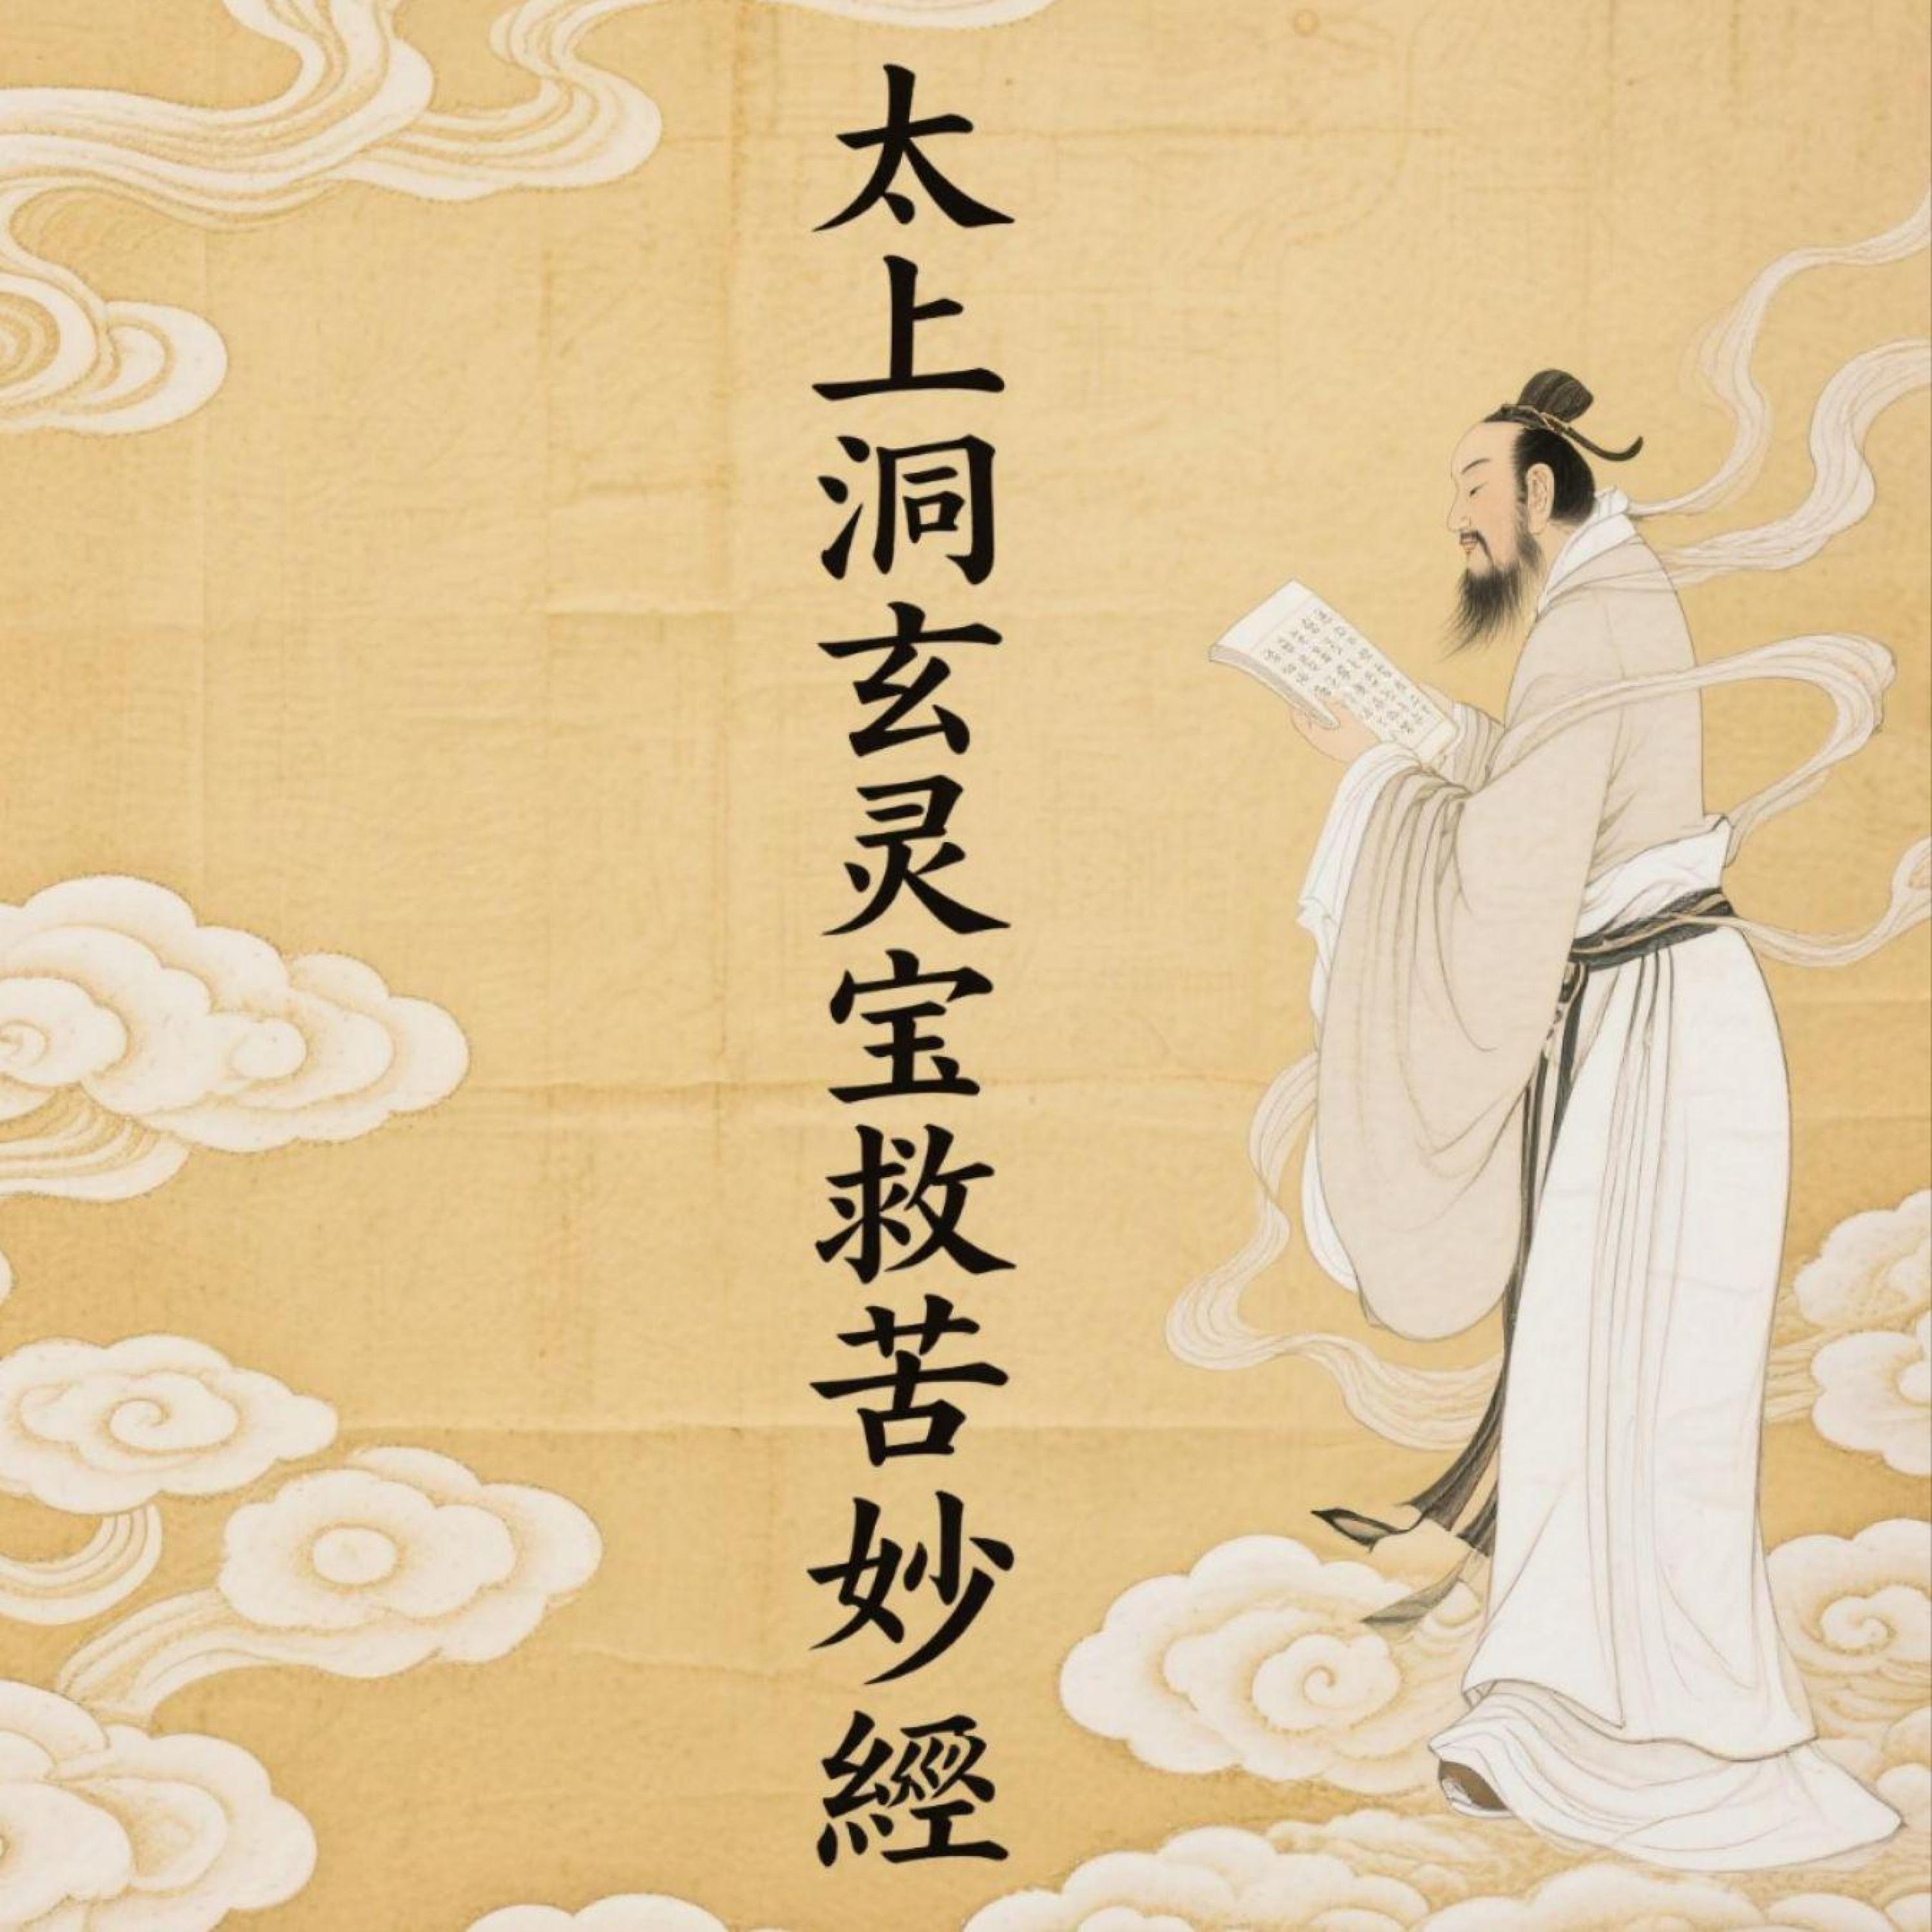 太上洞玄灵宝救苦妙經